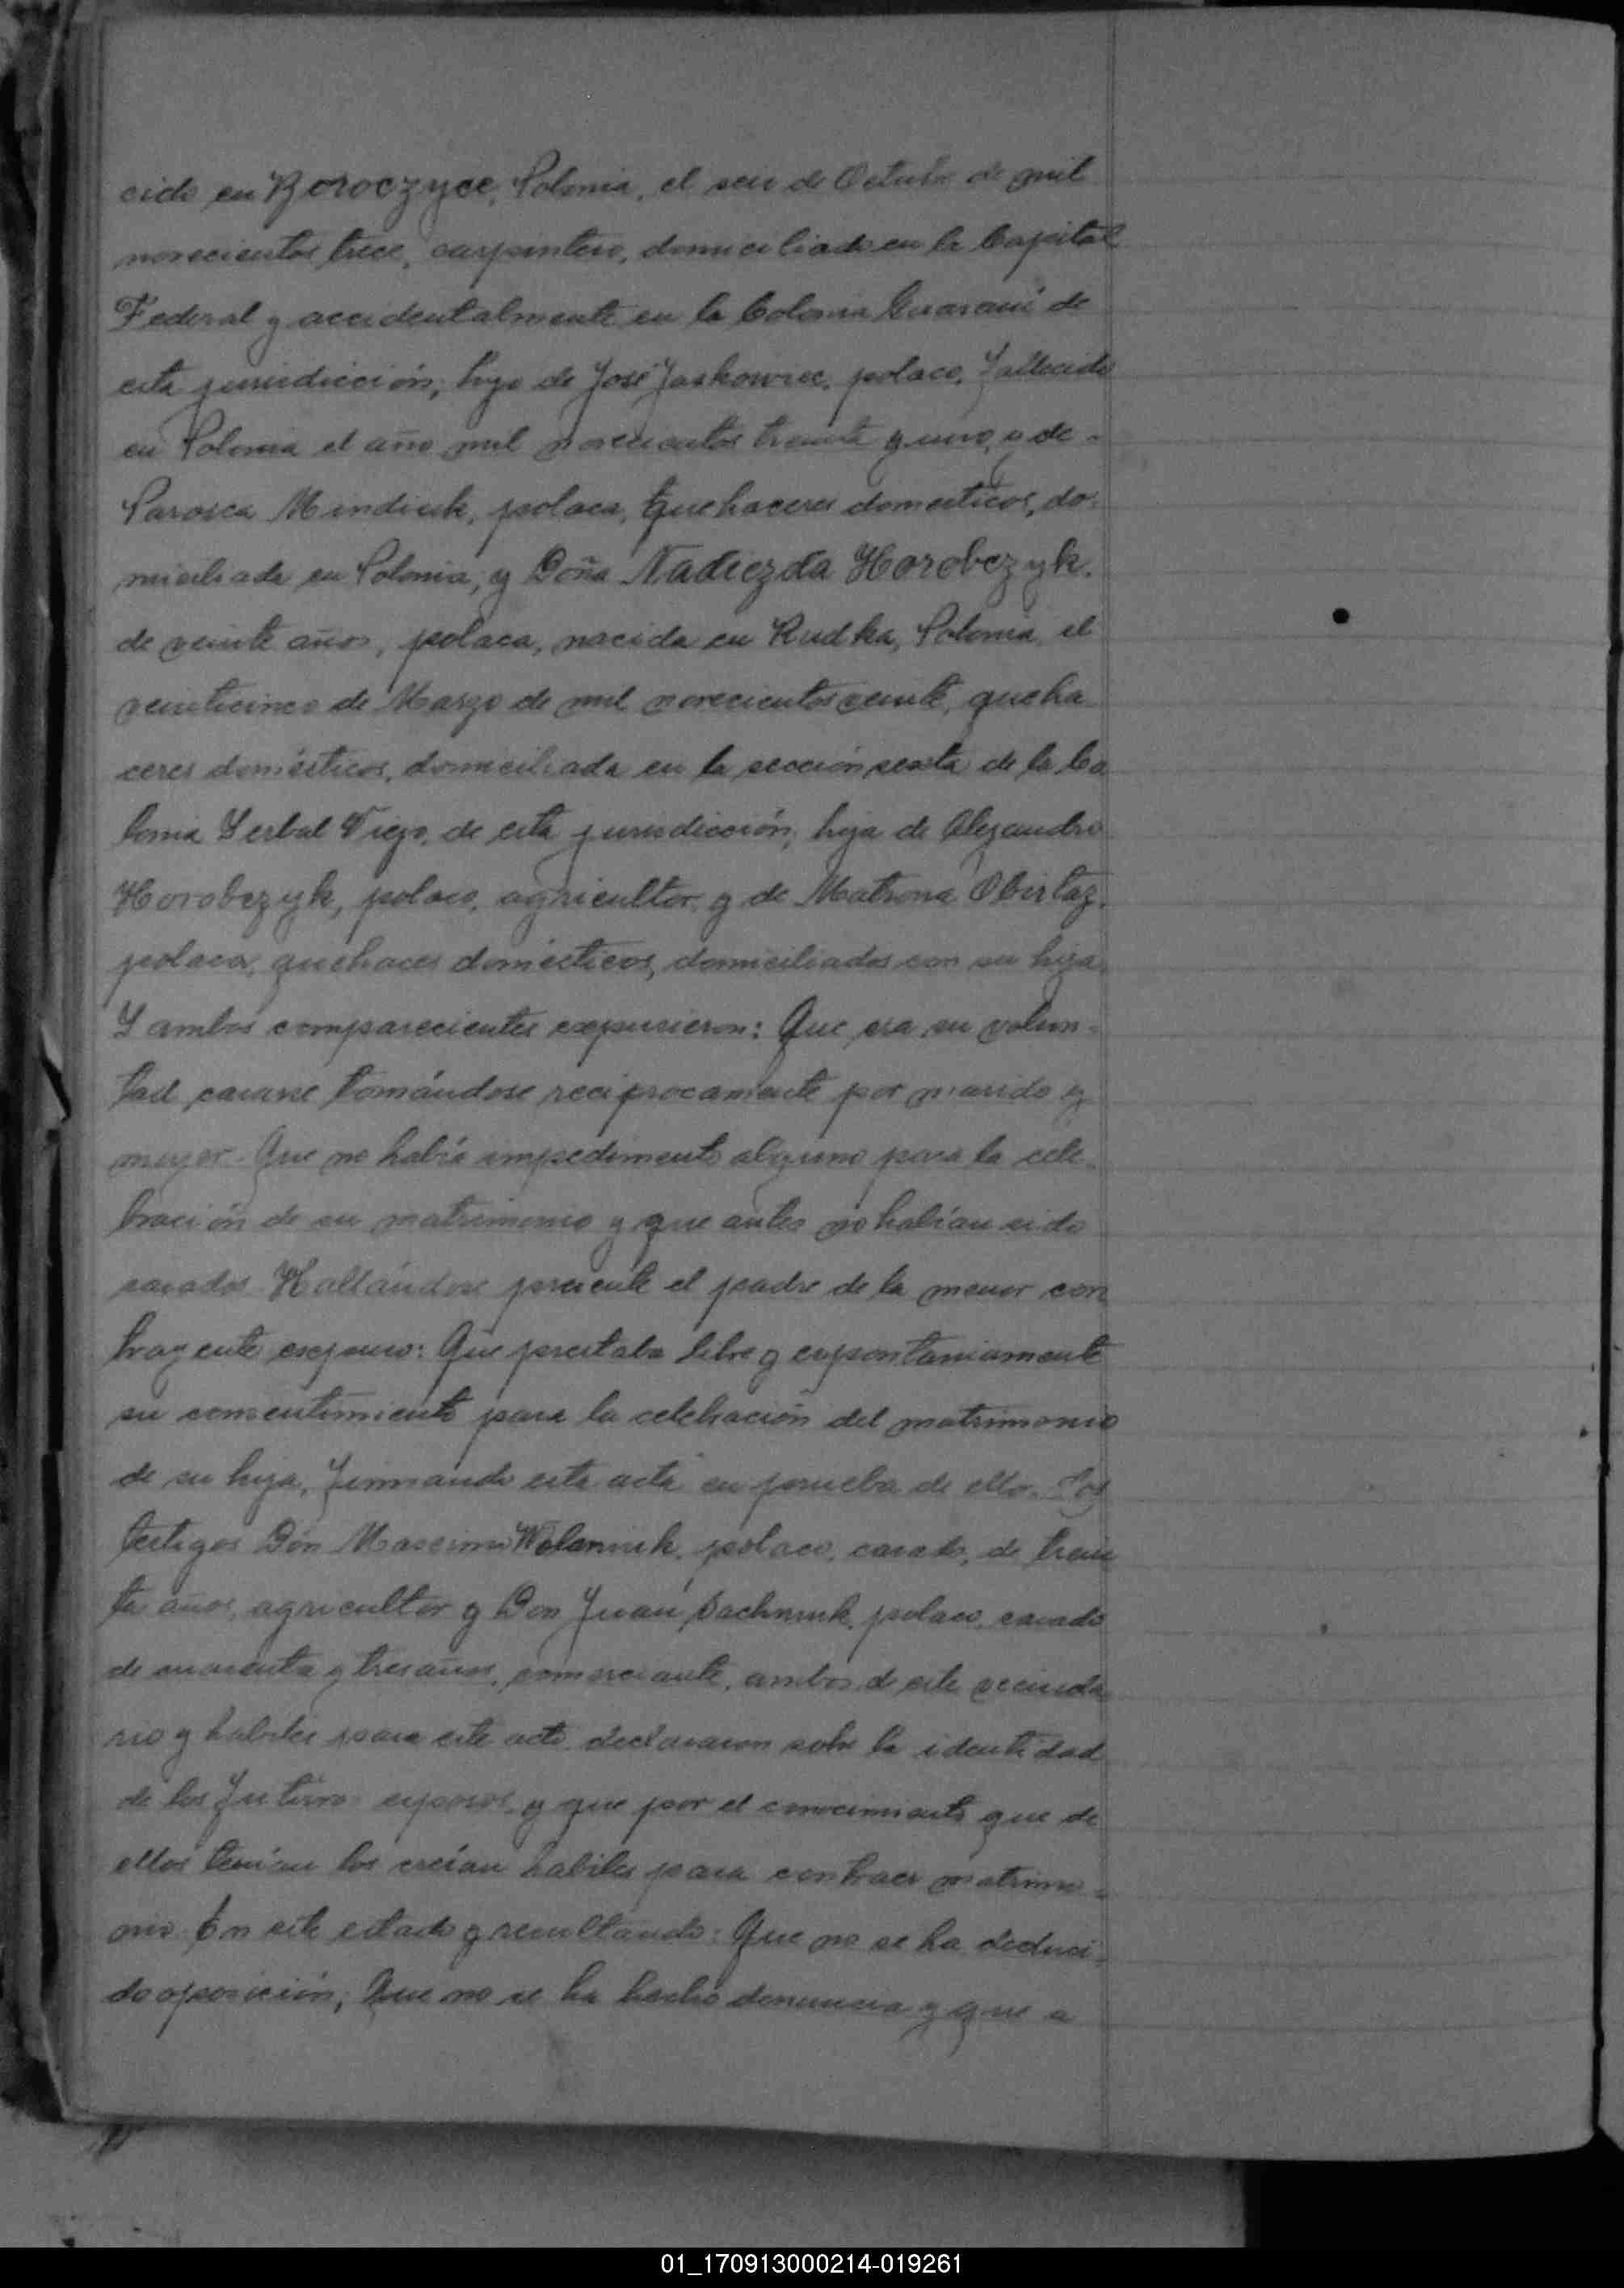 cido en Boroczyce, Polonia, el seis de Octubre de mil
novecientos trece, carpintero, domiciliado en la Capital
Federal y accidentalmente en la Colonia Guaraní de
esta jurisdicción; hijo de José Jaskowiec, polaco, fallecido
en Polonia el año mil novecientos treinta y uno, y de
Parosca Mindiuk, polaca, quehaceres domesticos, do-
miciliada en Polonia; y Doña Nadiezda Horobczyk,
de veinte años, polaca, nacida en Rudka, Polonia, el
veinticinco de Marzo de mil novecientos veinte, queha
ceres domésticos, domiciliada en la sección sexta de la Co
lonia Yerbal Viejo, de esta jurisdicción; hija de Alejandro
Horobczyk, polaco, agricultor, y de Matrona Obirtaz,
polaca, quehaces domésticos, domiciliados con su hija.
Y ambos comparecientes expusieron: Que era su volun-
tad casarse tomándose reciprocamente por marido y
mujer. Que no había impedimento alguno para la cele-
bración de su matrimonio y que antes no habían sido
casados. Hallándose presente el padre de la menor con
trayente expuso: Que prestaba libre y espontaniamente
su consentimiento para la celebración del matrimonio
de su hija, firmando esta acta en prueba de ello. Los
testigos Dón Maximo Wolaniuk, polaco, casado, de trein
ta años, agricultor y Don Juan Sachniuk, polaco, casado
de cuarenta y tres años, comerciante, ambos d este vecinda
rio y habiles para este acto declararon sobre la identidad
de los futuros esposos y que por el conocimiento que de
ellos tenían los creían habiles para contraer matrimo-
nio. En este estado y resultando: Que no se ha deduci-
do oposición; Que no se ha hecho denuncia y que a
01_170913000214-019261